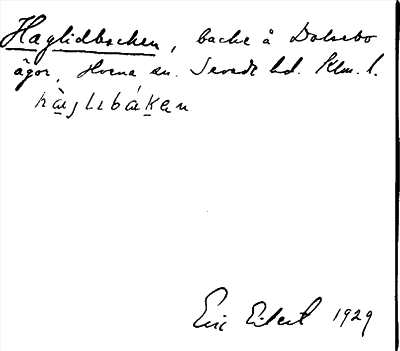 Haglidbacken, backe å Dalsebo
ägor, Horna sn. Sevede hd. Klm. l.
hàglibáken
Eric Eilert 1929